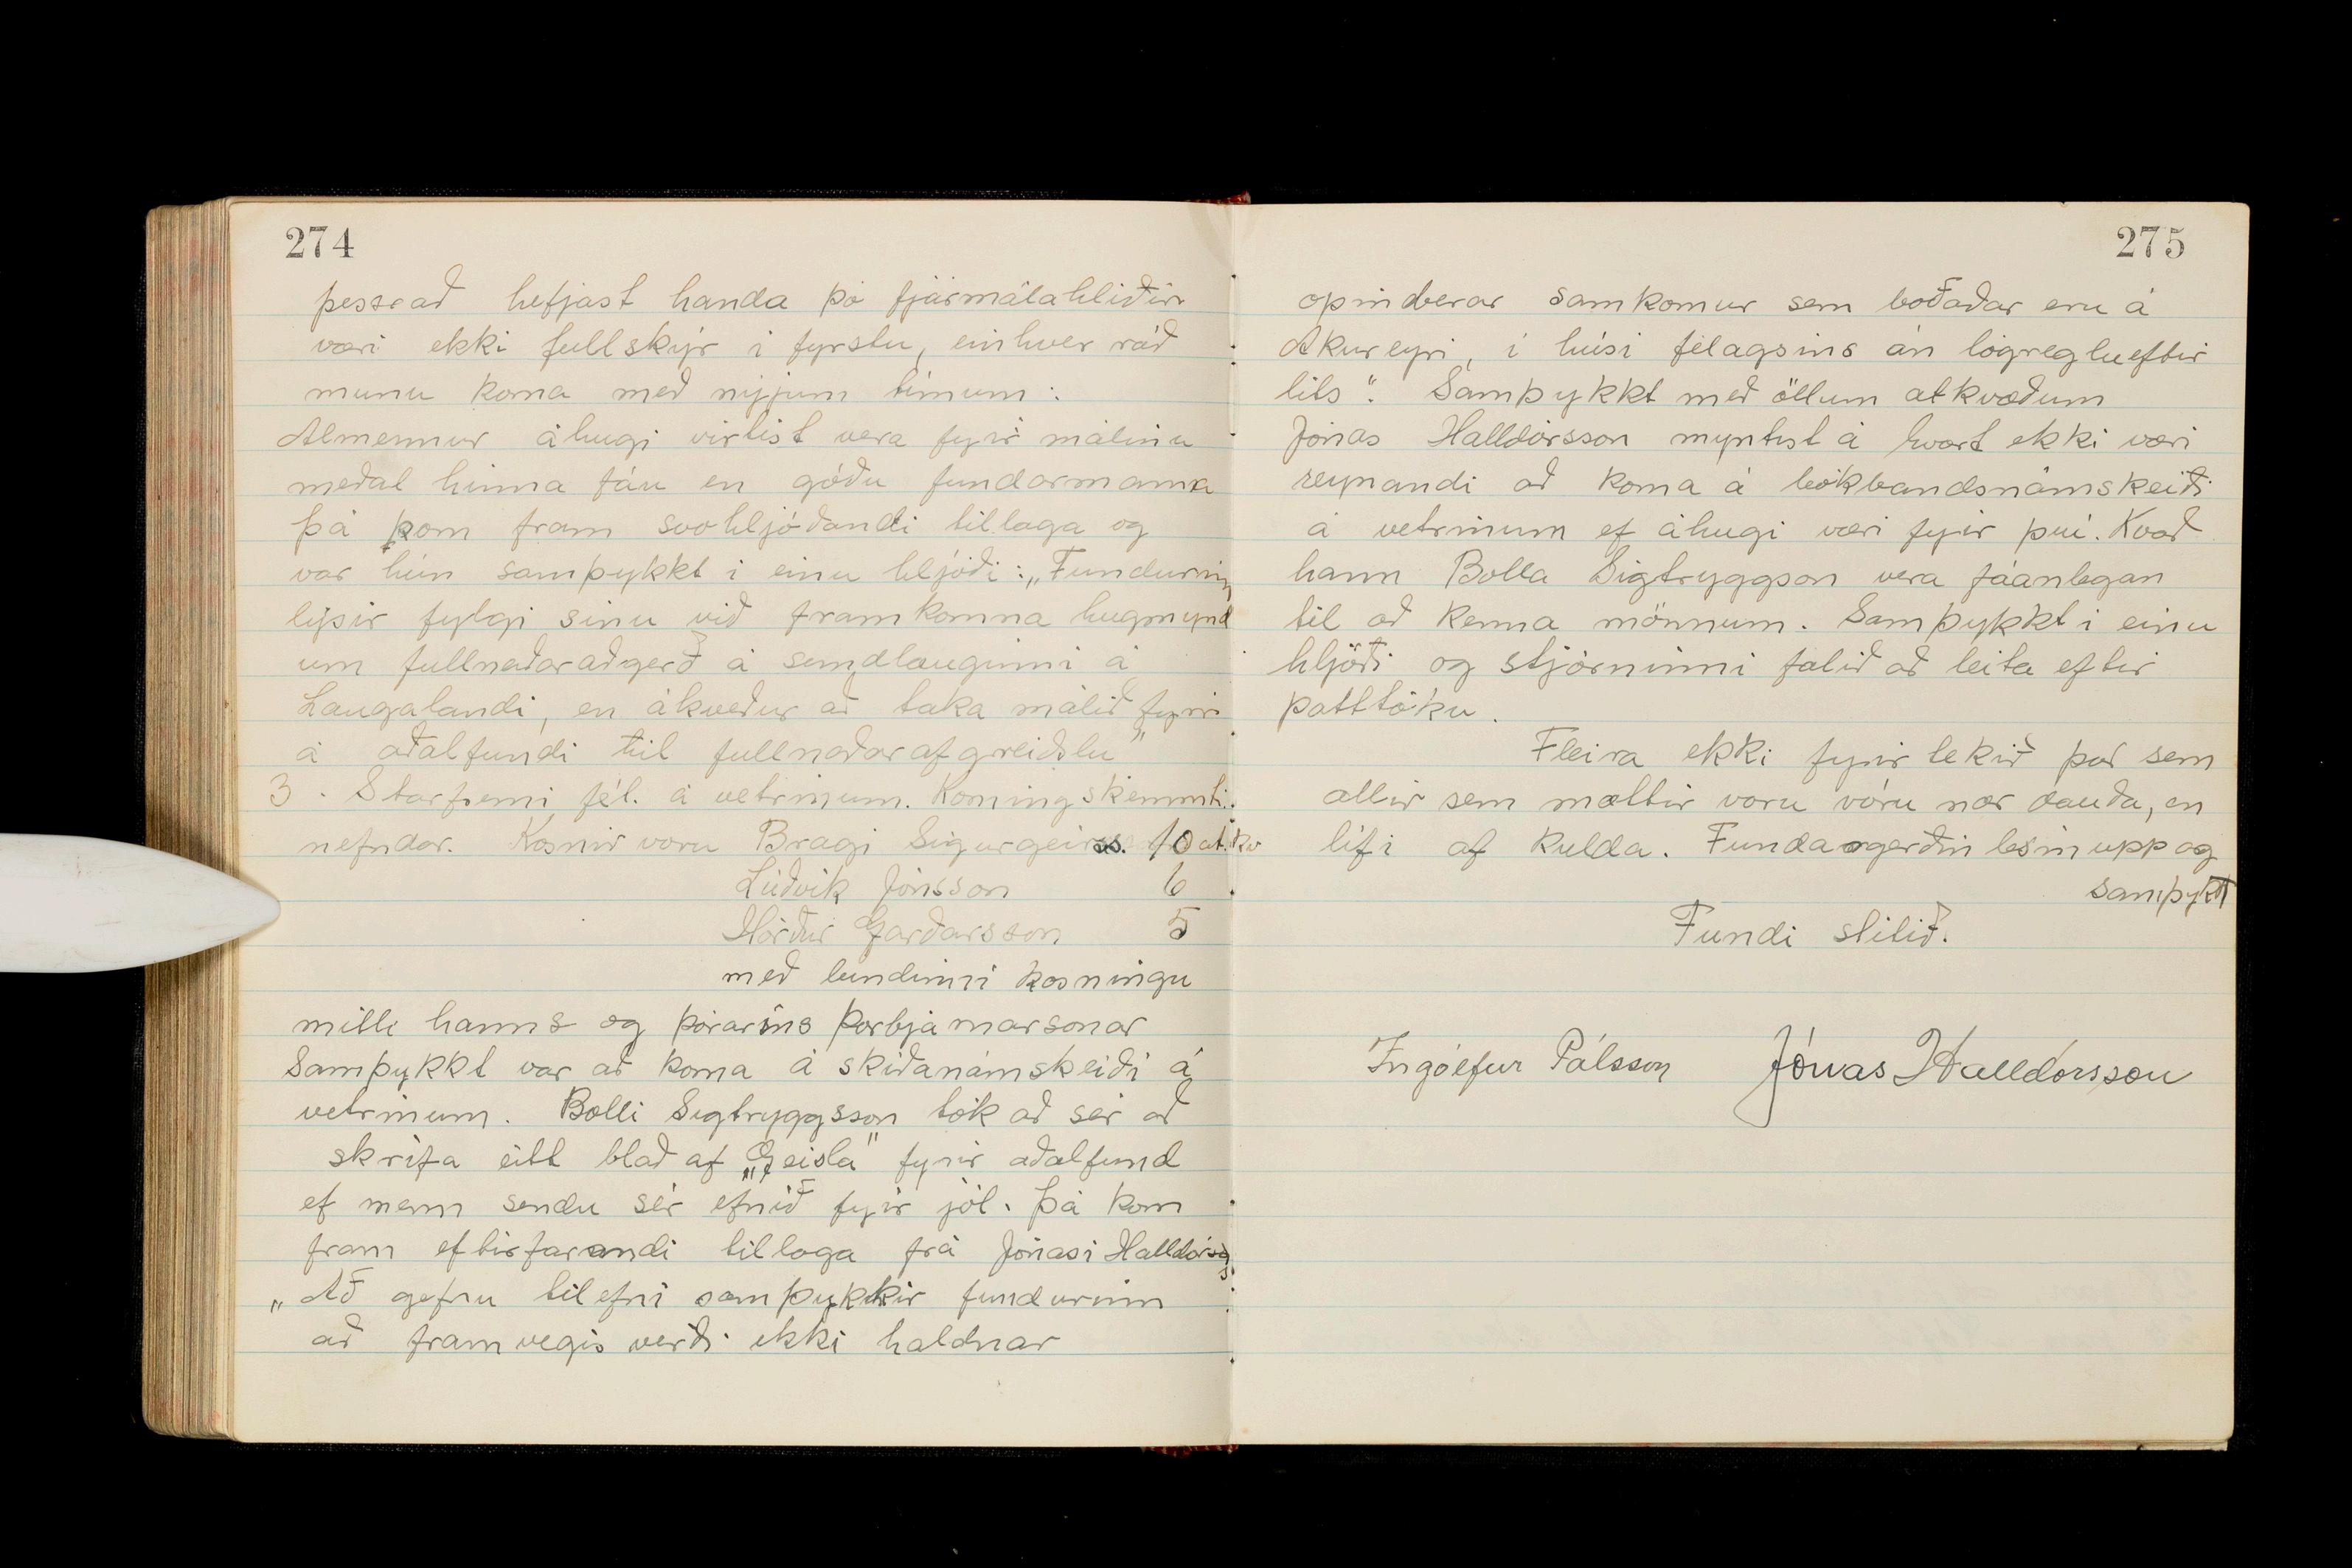 274
þess að hefjast handa þó fjármálahliðin
væri ekki fullskýr í fyrstu, einhver ráð
munu koma með nýjum tímum.
Almennur áhugi virtist vera fyrir málinu
meðal hinna fáu en góðu fundarmanna
Þá kom fram svohljóðandi tillaga og
var hún samþykkt í einu hljóði: „Fundurinn
lýsir fylgi sínu við framkomna hugmynd
um fullnaðaraðgerð á sundlauginni á
Laugalandi, en ákveður að taka málið fyrir
á aðalfundi til fullnaðarafgreiðslu"
3. Starfsemi fél. á vetrinum. Kosning skemmti-
nefndar. Kosnir voru Bragi Sigurgeirs. 10 at.kv
Lúðvik Jónsson 6
Hörður Garðarsson 5
með bundinni kosningu
milli hanns og Þórarins Þorbjarnarsonar
Samþykkt var að koma á skíðanámskeiði á
vetrinum. Bolli Sigtryggsson tók að sér að
skrifa eitt blað af „Geisla" fyrir aðalfund
ef menn sendu sér efnið fyrir jól. Þá kom
fram eftirfarandi tillaga frá Jónasi Halldórss
„Að gefnu tilefni samþykkir fundurinn
að framvegis verði ekki haldnar
275
opinberar samkomur sem boðaðar eru á
Akureyri, í húsi félagsins án lögreglueftir
lits". Samþykkt með öllum atkvæðum
Jónas Halldórsson myntist á hvort ekki væri
reynandi að koma á bókbandsnámskeiði
á vetrinum ef áhugi væri fyrir því. Kvað
hann Bolla Sigtryggson vera fáanlegan
til að kenna mönnum. Samþykkt i einu
hljóði og stjórninni falið að leita eftir
þátttöku.
Fleira ekki fyrir tekið þar sem
allir sem mættir voru vóru nær dauða, en
lífi af kulda. Fundargerðin lesin upp og
samþykt
Fundi slitið.
Ingólfur Pálsson Jónas Halldórsson